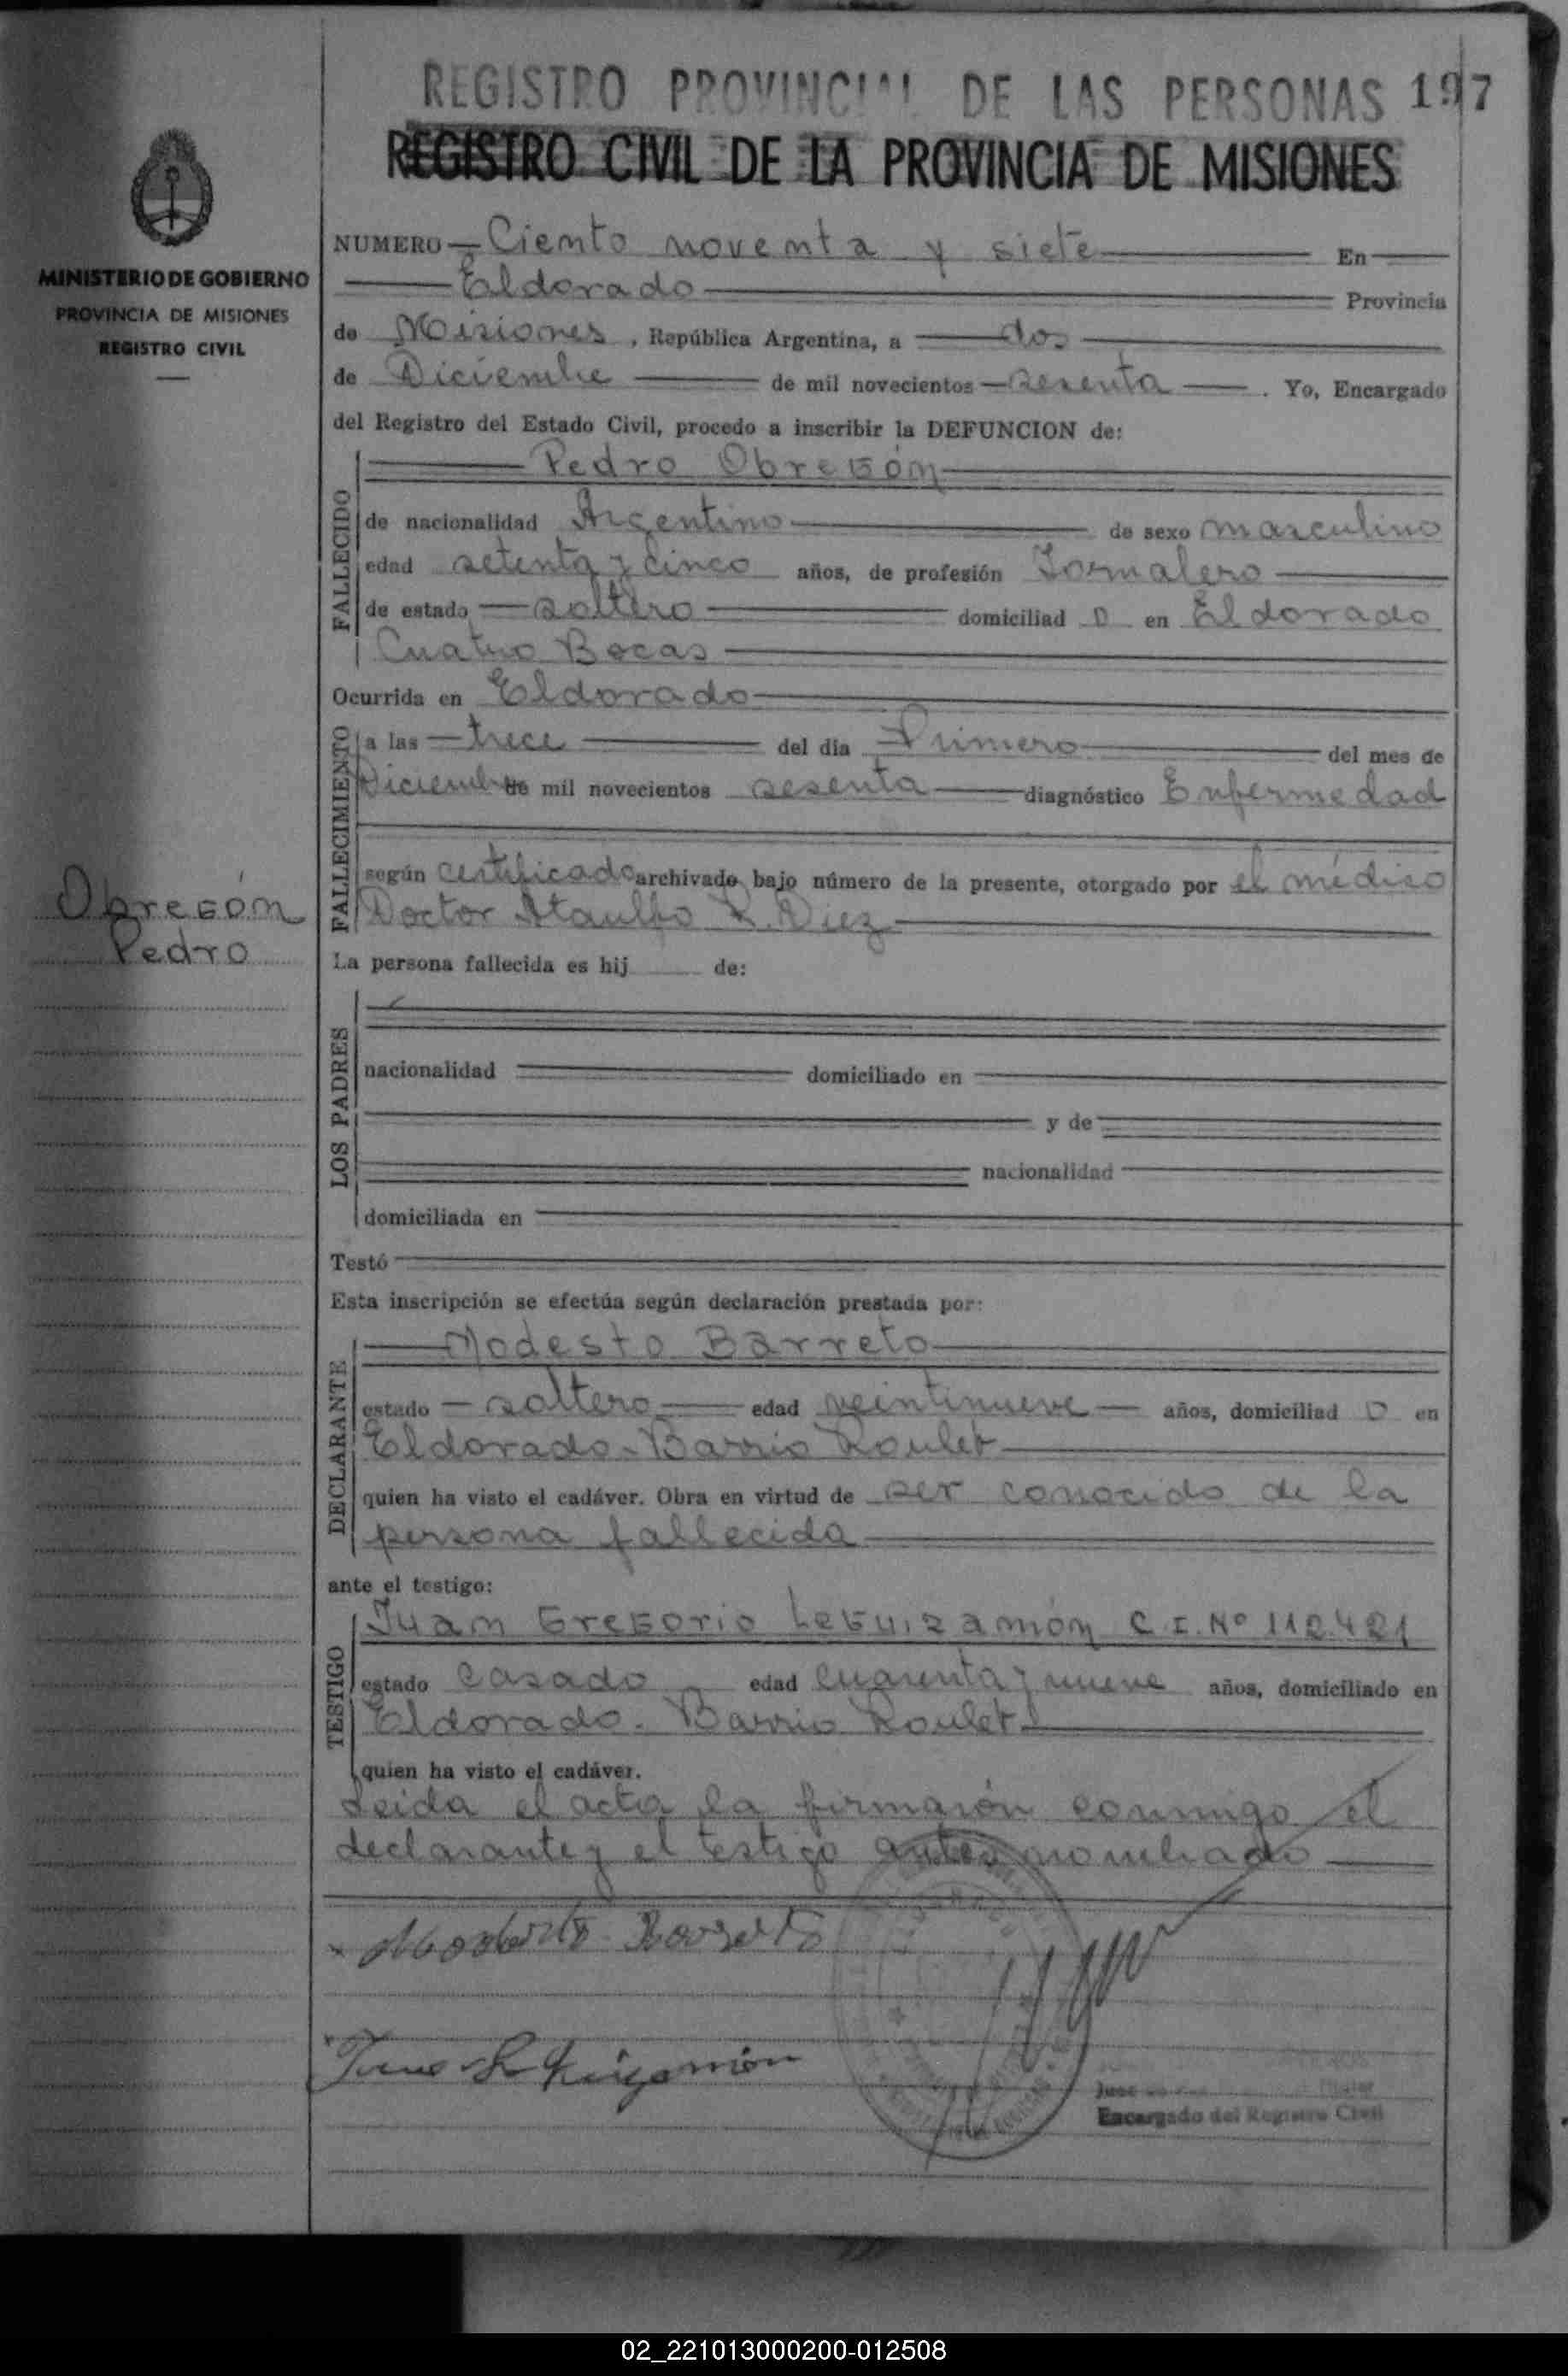 REGISTRO PROVINCIAL DE LAS PERSONAS 197
REGISTRO CIVIL DE LA PROVINCIA DE MISIONES
MINISTERIO DE GOBIERNO
PROVINCIA DE MISIONES
REGISTRO CIVIL
NUMERO Ciento noventa y siete En
Eldorado Provincia
de Misiones, República Argentina, a dos
de Diciembre de mil novecientos sesenta. Yo, Encargado
del Registro del Estado Civil, procedo a inscribir la DEFUNCION de:
FALLECIDO
Pedro Obregón
de nacionalidad Argentino de sexo masculino
edad setenta y cinco años, de profesión Jornalero
de estado soltero domiciliad o en Eldorado
Cuatro Bocas
Ocurrida en Eldorado
FALLECIMIENTO
a las trece del día Primero del mes de
Diciembre de mil novecientos sesenta diagnóstico Enfermedad
según certificado archivado bajo número de la presente, otorgado por el médico
Doctor Ataulfo R. Diez
Obregón
Pedro
La persona fallecida es hij de:
LOS PADRES
nacionalidad domiciliado en
y de
nacionalidad
domiciliada en
Testó
Esta inscripción se efectúa según declaración prestada por:
DECLARANTE
Modesto Barreto
estado soltero edad veintinueve años, domiciliad o en
Eldorado - Barrio Roulet
quien ha visto el cadáver. Obra en virtud de ser conocido de la
persona fallecida
ante el testigo:
TESTIGO
Juan Gregorio Leguizamón C.I. Nº 112.421
estado casado edad cuarenta y nueve años, domiciliado en
Eldorado. Barrio Roulet
quien ha visto el cadáver.
Leida el acta la firmarón conmigo el
declarante y el testigo antes nombrado
Encargado del Registro Civil
02_221013000200-012508